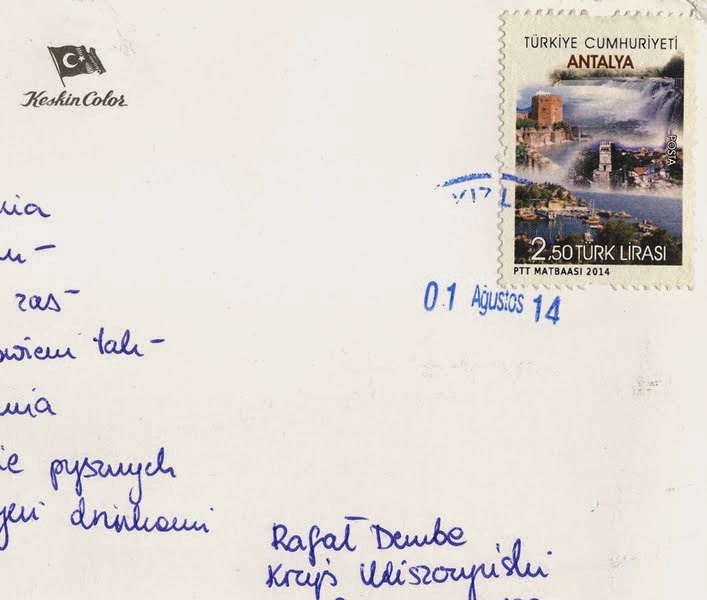 TÜRKİYE CUMHURİYETİ
ANTALYA
POSTA
2,50 TÜRK LİRASI
PTT MATBAASI 2014
Keskin Color
01 Ağustos 14
nia
zas-
tak-
nia
ie pysznych
drinkami
Rafał Dembe
Krzyś